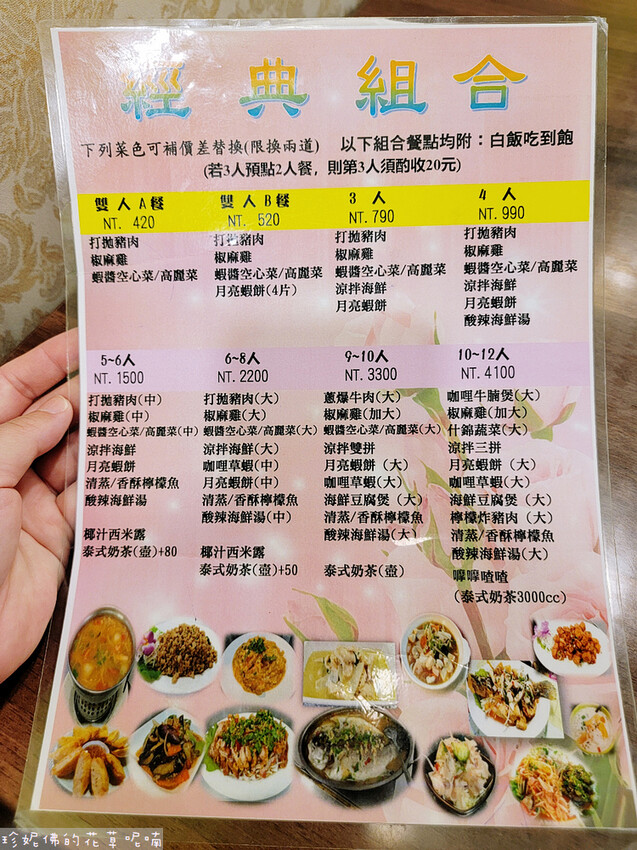 經典組合
下列菜色可補價差替換(限換兩道) 以下組合餐點均附：白飯吃到飽
(若3人預點2人餐，則第3人須酌收20元)
雙人A餐
NT. 420
打拋豬肉
椒麻雞
蝦醬空心菜/高麗菜
雙人B餐
NT. 520
打拋豬肉
椒麻雞
蝦醬空心菜/高麗菜
月亮蝦餅(4片)
3 人
NT.790
打拋豬肉
椒麻雞
蝦醬空心菜/高麗菜
涼拌海鮮
月亮蝦餅
4 人
NT.990
打拋豬肉
椒麻雞
蝦醬空心菜/高麗菜
涼拌海鮮
月亮蝦餅
酸辣海鮮湯
5~6人
NT.1500
打拋豬肉(中)
椒麻雞(中)
蝦醬空心菜/高麗菜(中)
涼拌海鮮
月亮蝦餅
清蒸/香酥檸檬魚
酸辣海鮮湯
椰汁西米露
泰式奶茶(壺)+80
6~8人
NT.2200
打拋豬肉(大)
椒麻雞(大)
蝦醬空心菜/高麗菜(大)
涼拌海鮮(大)
咖哩草蝦(中)
月亮蝦餅(中)
清蒸/香酥檸檬魚
酸辣海鮮湯(中)
椰汁西米露
泰式奶茶(壺)+50
9~10人
NT.3300
蔥爆牛肉(大)
椒麻雞(加大)
蝦醬空心菜/高麗菜(大)
涼拌雙拼
月亮蝦餅 (大)
咖哩草蝦(大)
海鮮豆腐煲 (大)
清蒸/香酥檸檬魚
酸辣海鮮湯(大)
泰式奶茶(壺)
10~12人
NT.4100
咖哩牛腩煲(大)
椒麻雞(加大)
什錦蔬菜(大)
涼拌三拼
月亮蝦餅 (大)
咖哩草蝦(大)
海鮮豆腐煲 (大)
檸檬炸豬肉 (大)
清蒸/香酥檸檬魚
酸辣海鮮湯(大)
嚤嚤喳喳
(泰式奶茶3000cc)
珍妮佛的花草呢喃